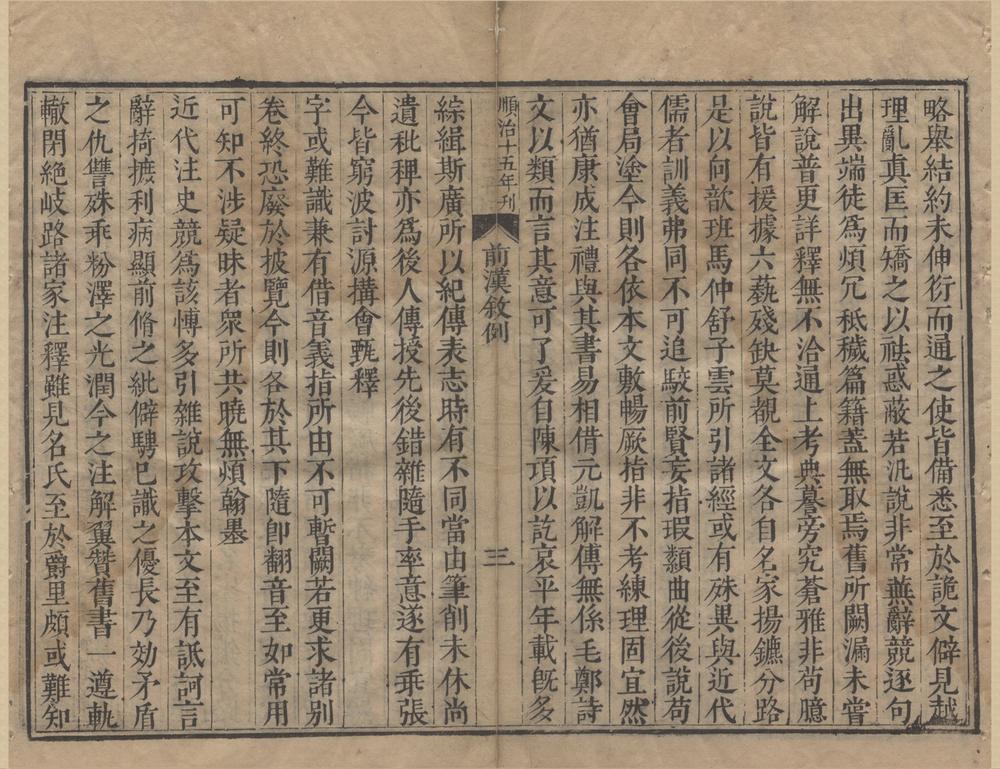 略舉結約未伸衍而通之使皆備悉至於詭文僻見越
理亂真匡而矯之以祛惑蔽若汎說非常蕪辭競逐句
出異端徒爲煩冗秖穢篇籍蓋無取焉舊所闕漏未嘗
解說普更詳釋無不洽通上考典謩旁究蒼雅非苟臆
說皆有援據六蓺殘缺莫覩全文各自名家揚鑣分路
是以向歆班馬仲舒子雲所引諸經或有殊異與近代
儒者訓義弗同不可追駮前賢妄指瑕纇曲從後說苟
會扃塗今則各依本文敷暢厥指非不考練理固宜然
亦猶康成注禮與其書易相偕元凱解傳無係毛鄭詩
文以類而言其意可了爰自陳項以訖哀平年載旣多
順治十五年刊
前漢敘例
三
綜緝斯廣所以紀傳表志時有不同當由筆削未休尚
遺秕稗亦爲後人傳授先後錯雜隨手率意遂有乖張
今皆窮波討源搆會甄釋
字或難識兼有借音義指所由不可暫闕若更求諸別
卷終恐廢於披覽今則各於其下隨卽翻音至如常用
可知不涉疑昧者衆所共曉無煩翰墨
近代注史競爲該愽多引雜說攻擊本文至有詆訶言
辭掎摭利病顯前脩之紕僻騁已識之優長乃効矛盾
之仇讐殊乖粉澤之光潤今之注解翼贊舊書一遵軌
轍閉絕岐路諸家注釋雖見名氏至於爵里頗或難知